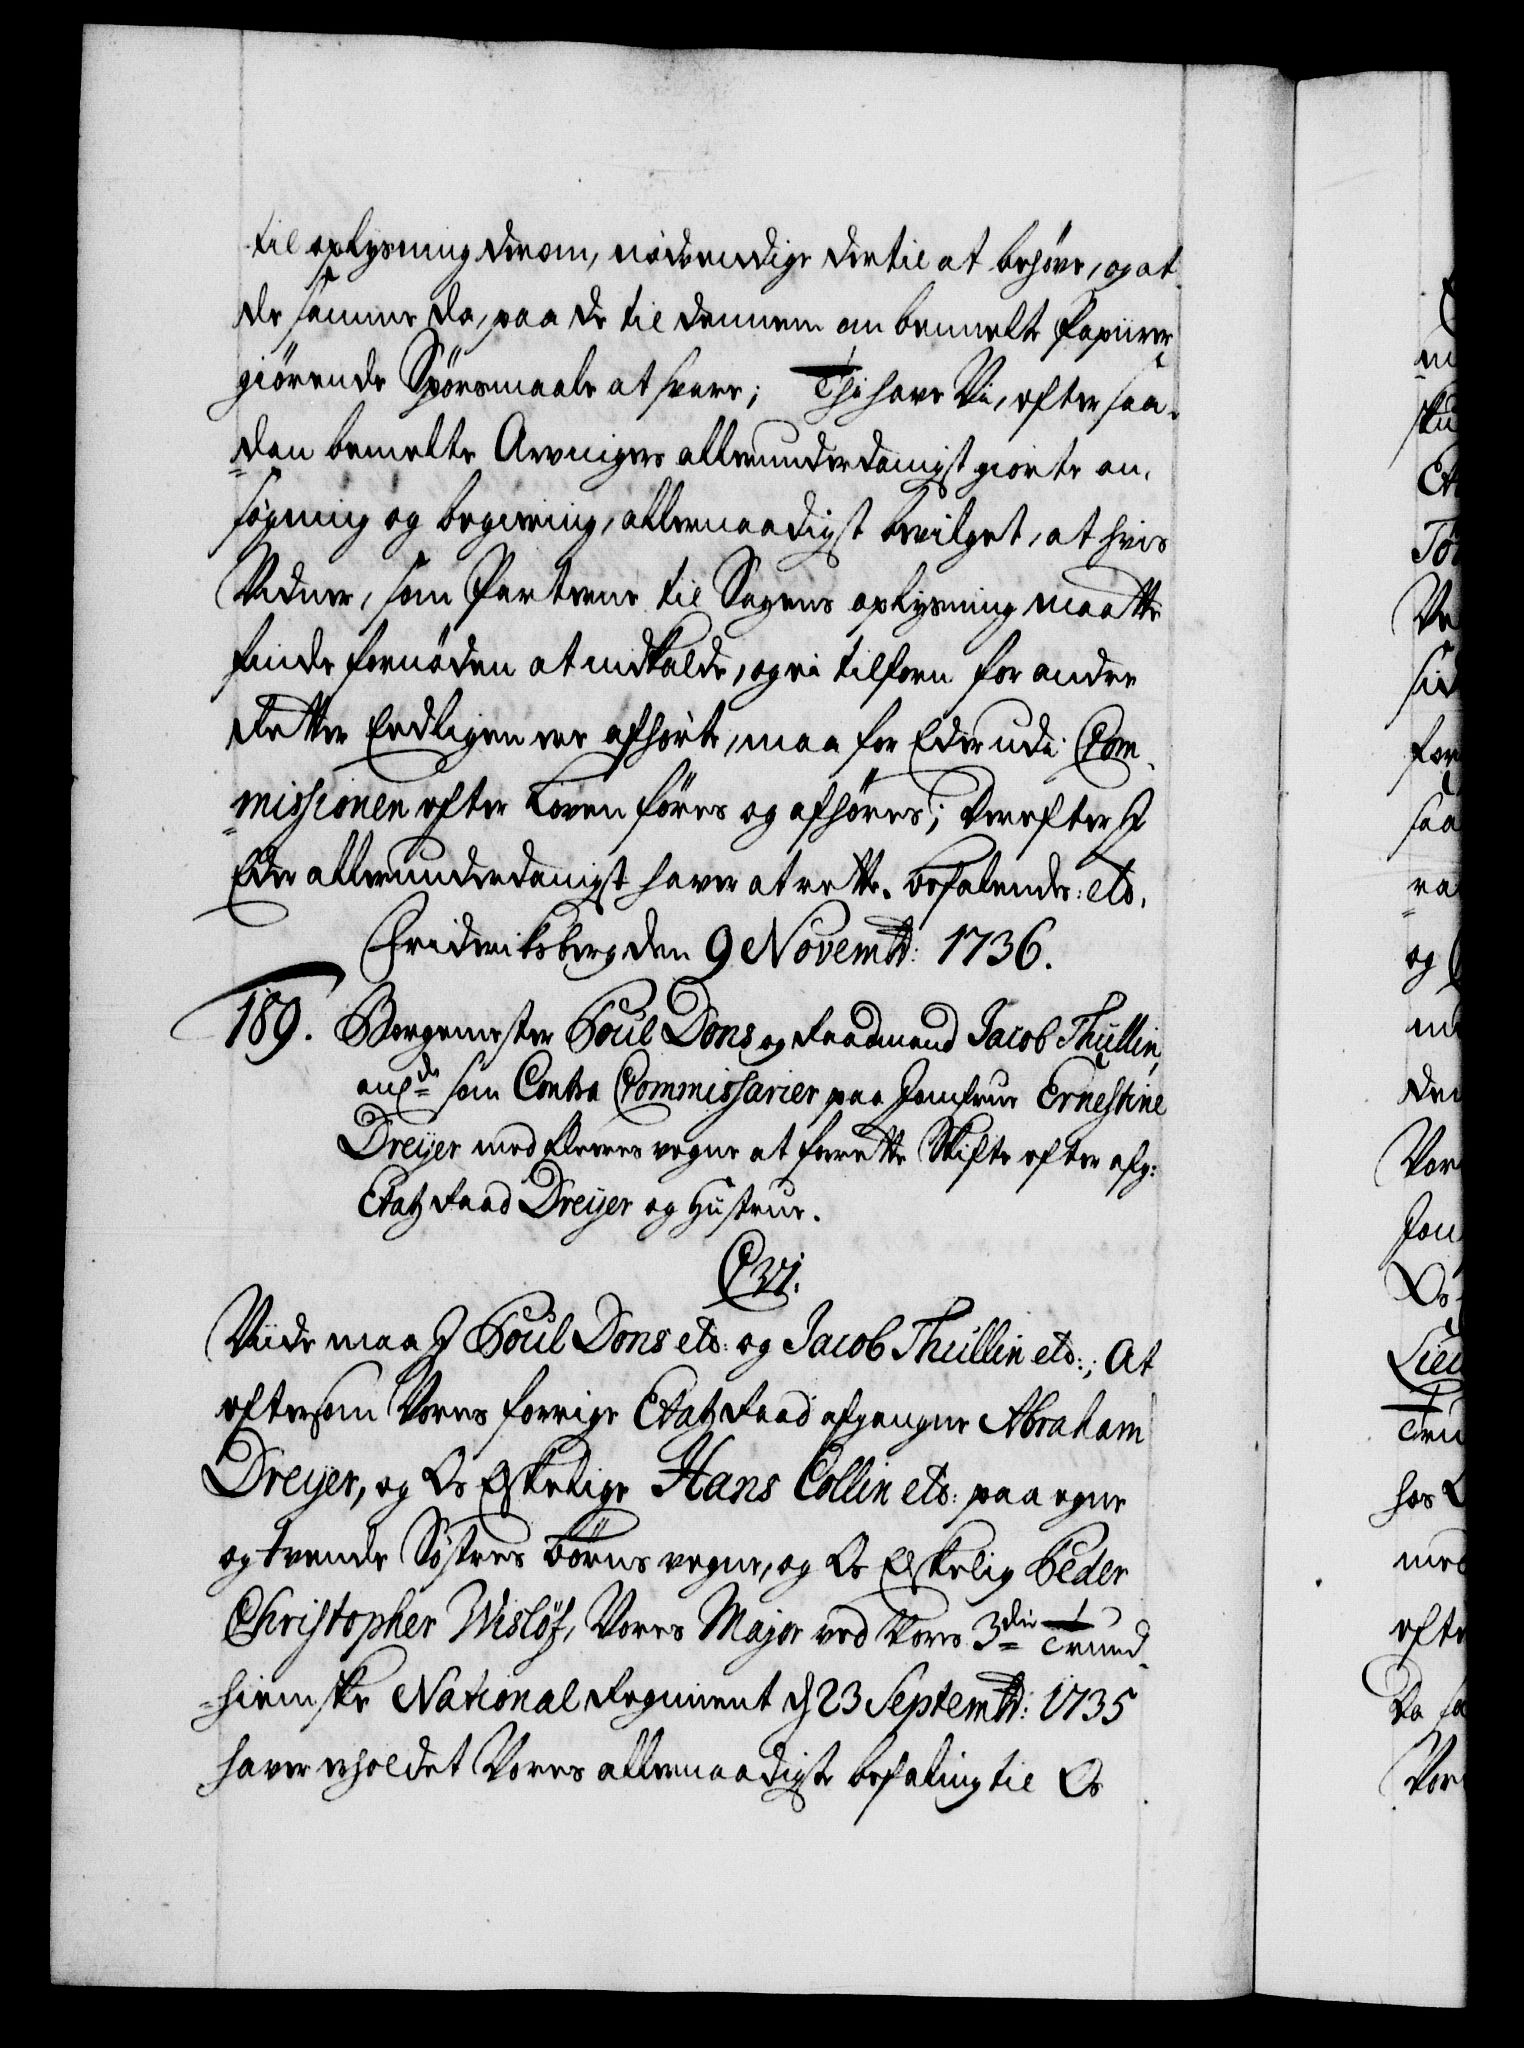 til oplysning derom, nødvendige dertil at behøve, og at
de samme da, paa de til dennem om bemelte Papiirer
giörende Spörsmaale at svare; Thi have Vi, efter saa-
dan bemelte Arvingers allerunderdanigst giorte an-
søgning og begiering, allernaadigst bevilget, at hvis
Vidner, som Parterne til Sagens oplysning maatte
finde fornöden at indkalde, og ei tilforn for andre
Retter Eedligen ere afhørte, maa for Eder udi Com-
missionen efter Loven föres og afhöres; Derefter I
Eder allerunderdanigst haver at rette. Befalendes: etc.
Friderichsberg den 9 Novembr: 1736.
189. Borgemester Poul Dons og Raadmand Jacob Thullin,
som Contra Commissarier paa Jomfrue Ernestine
Dreÿer med fleeres vegne at forrette Skifte efter afg:
Etatz Raad Dreÿer og Hustrue.
C 6ti.
Viide maa I Poul Dons etc: og Jacob Thullin etc:; At
eftersom Vores forrige Etatz Raad afgangne Abraham
Dreÿer, og Os Elskelige Hans Collin etc: paa egne
og tvende Söstres börns vegne, og Os Elskelig Peder
Christopher Wislöf, Vores Major ved Vores 3die Trund-
hiemske National Regiment d 23 Septembr: 1735
haver erholdet Vores allernaadigste befaling til Os